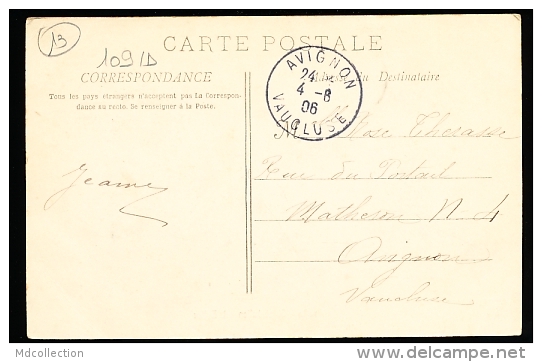 13
109
CARTE POSTALE
CORRESPONDANCE
Adresse du Destinataire
Tous les pays étrangers n'acceptent pas la Correspon-
dance au recto. Se renseigner à la Poste.
AVIGNON
24
4 -8
06
VAUCLUSE
M Rose Therasse
Rue du Portail
Matheron N. 4
Avignon
Vaucluse
Jeanne
Mdcollection
http://www.delcampe.net